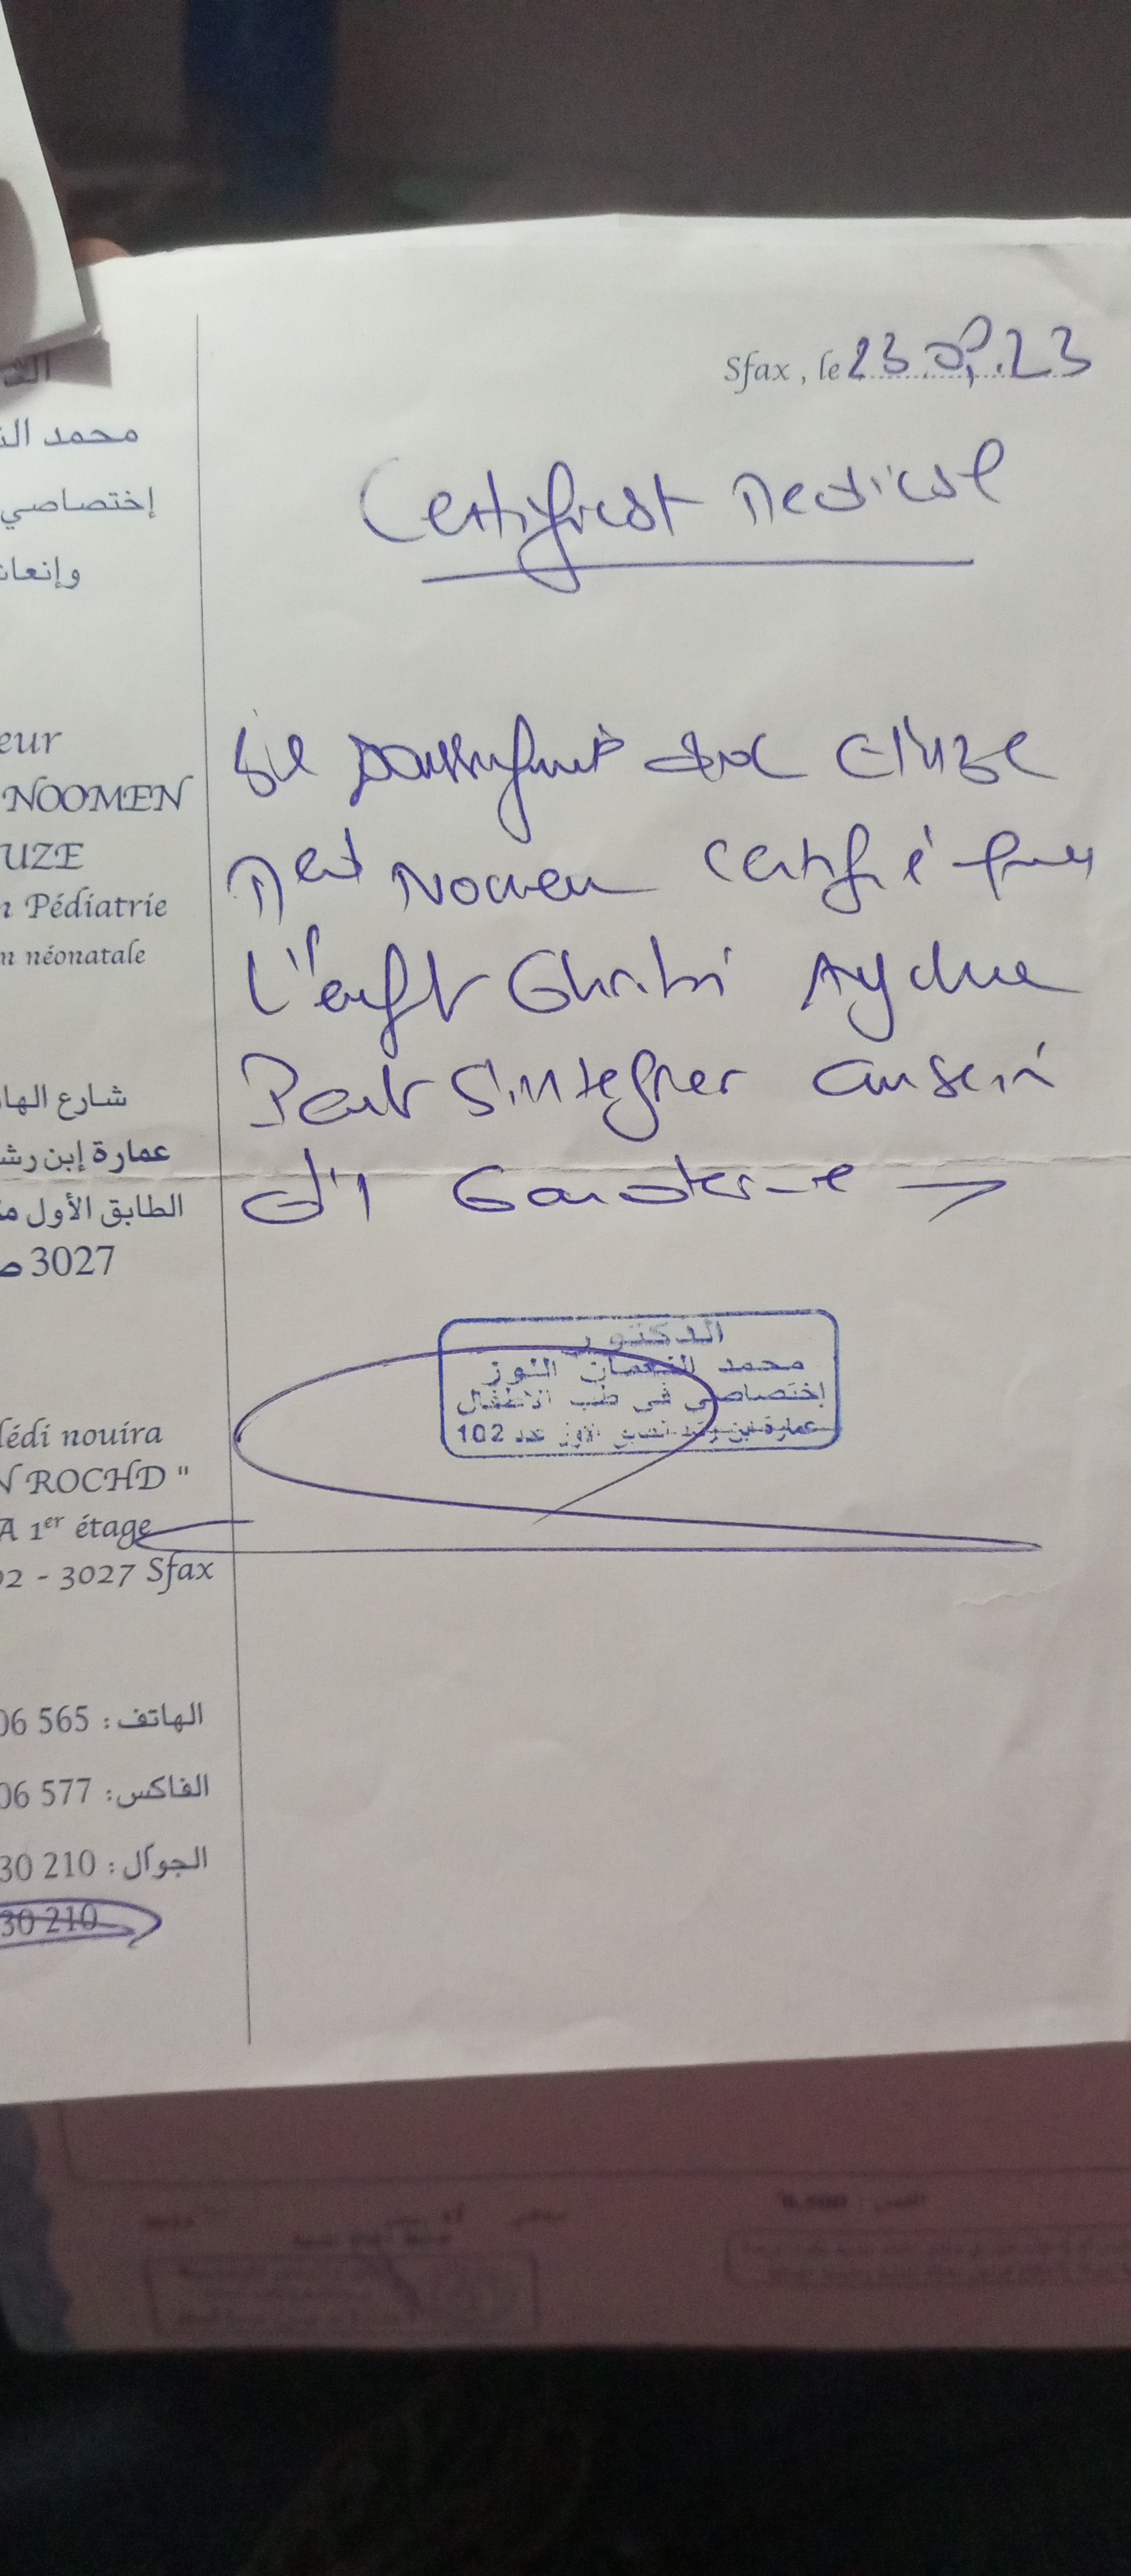 Sfax, le 23.09.23
Certificat Medical
محمد الن
إختصاصي
وإنعاش
eur
NOOMEN
UZE
n Pédiatrie
n néonatale
Je soussigné
Med Nomen certifie que
L'enft Ghribi Ayche
Peut s'integrer au sein
d'1 Garderie
شارع الها
عمارة إبن رش
الطابق الأول
3027 ص
الدكتور
محمد النعمان اللوز
إختصاصي في طب الأطفال
عمارة ابن رشد الطابق الأول عدد 102
lédi nouira
N ROCHD "
A 1er étage
02 - 3027 Sfax
الهاتف : 565 06
الفاكس: 577 06
الجوال : 210 30
30 210